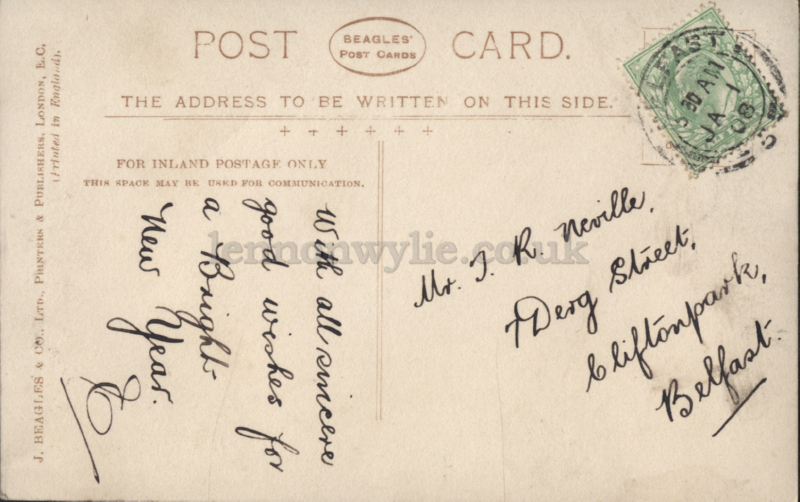 POST CARD.
BEAGLES'
POST CARDS
THE ADDRESS TO BE WRITTEN ON THIS SIDE.
FOR INLAND POSTAGE ONLY
THIS SPACE MAY BE USED FOR COMMUNICATION.
With all sincere
good wishes for
a Bright
New Year.
E
Mr. T. R. Neville,
7 Derg Street,
Cliftonpark,
Belfast.
BELFAST
30 AM
JA 1
08
J. BEAGLES & CO., LTD., PRINTERS & PUBLISHERS, LONDON, E.C.
(Printed in England).
lennonwylie.co.uk